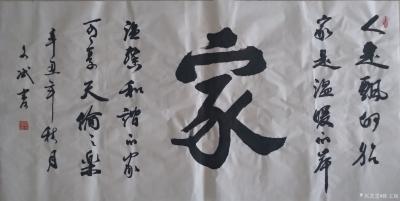 人是飘的船
家是温暖的岸
家
温馨和谐的家
可享天伦之乐
辛丑年秋月
文斌书